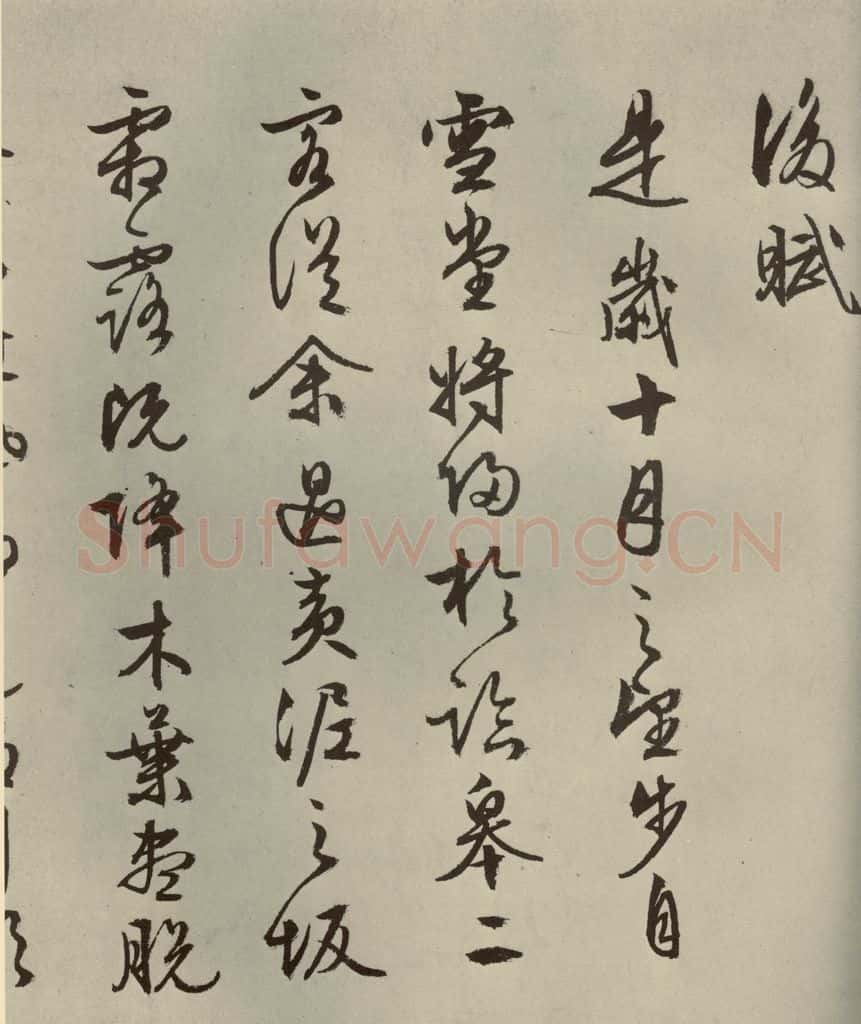 後賦
是歲十月之望步自
雪堂將歸於臨皋二
客從余過黃泥之坂
霜露既降木葉盡脫
Shufawang.CN